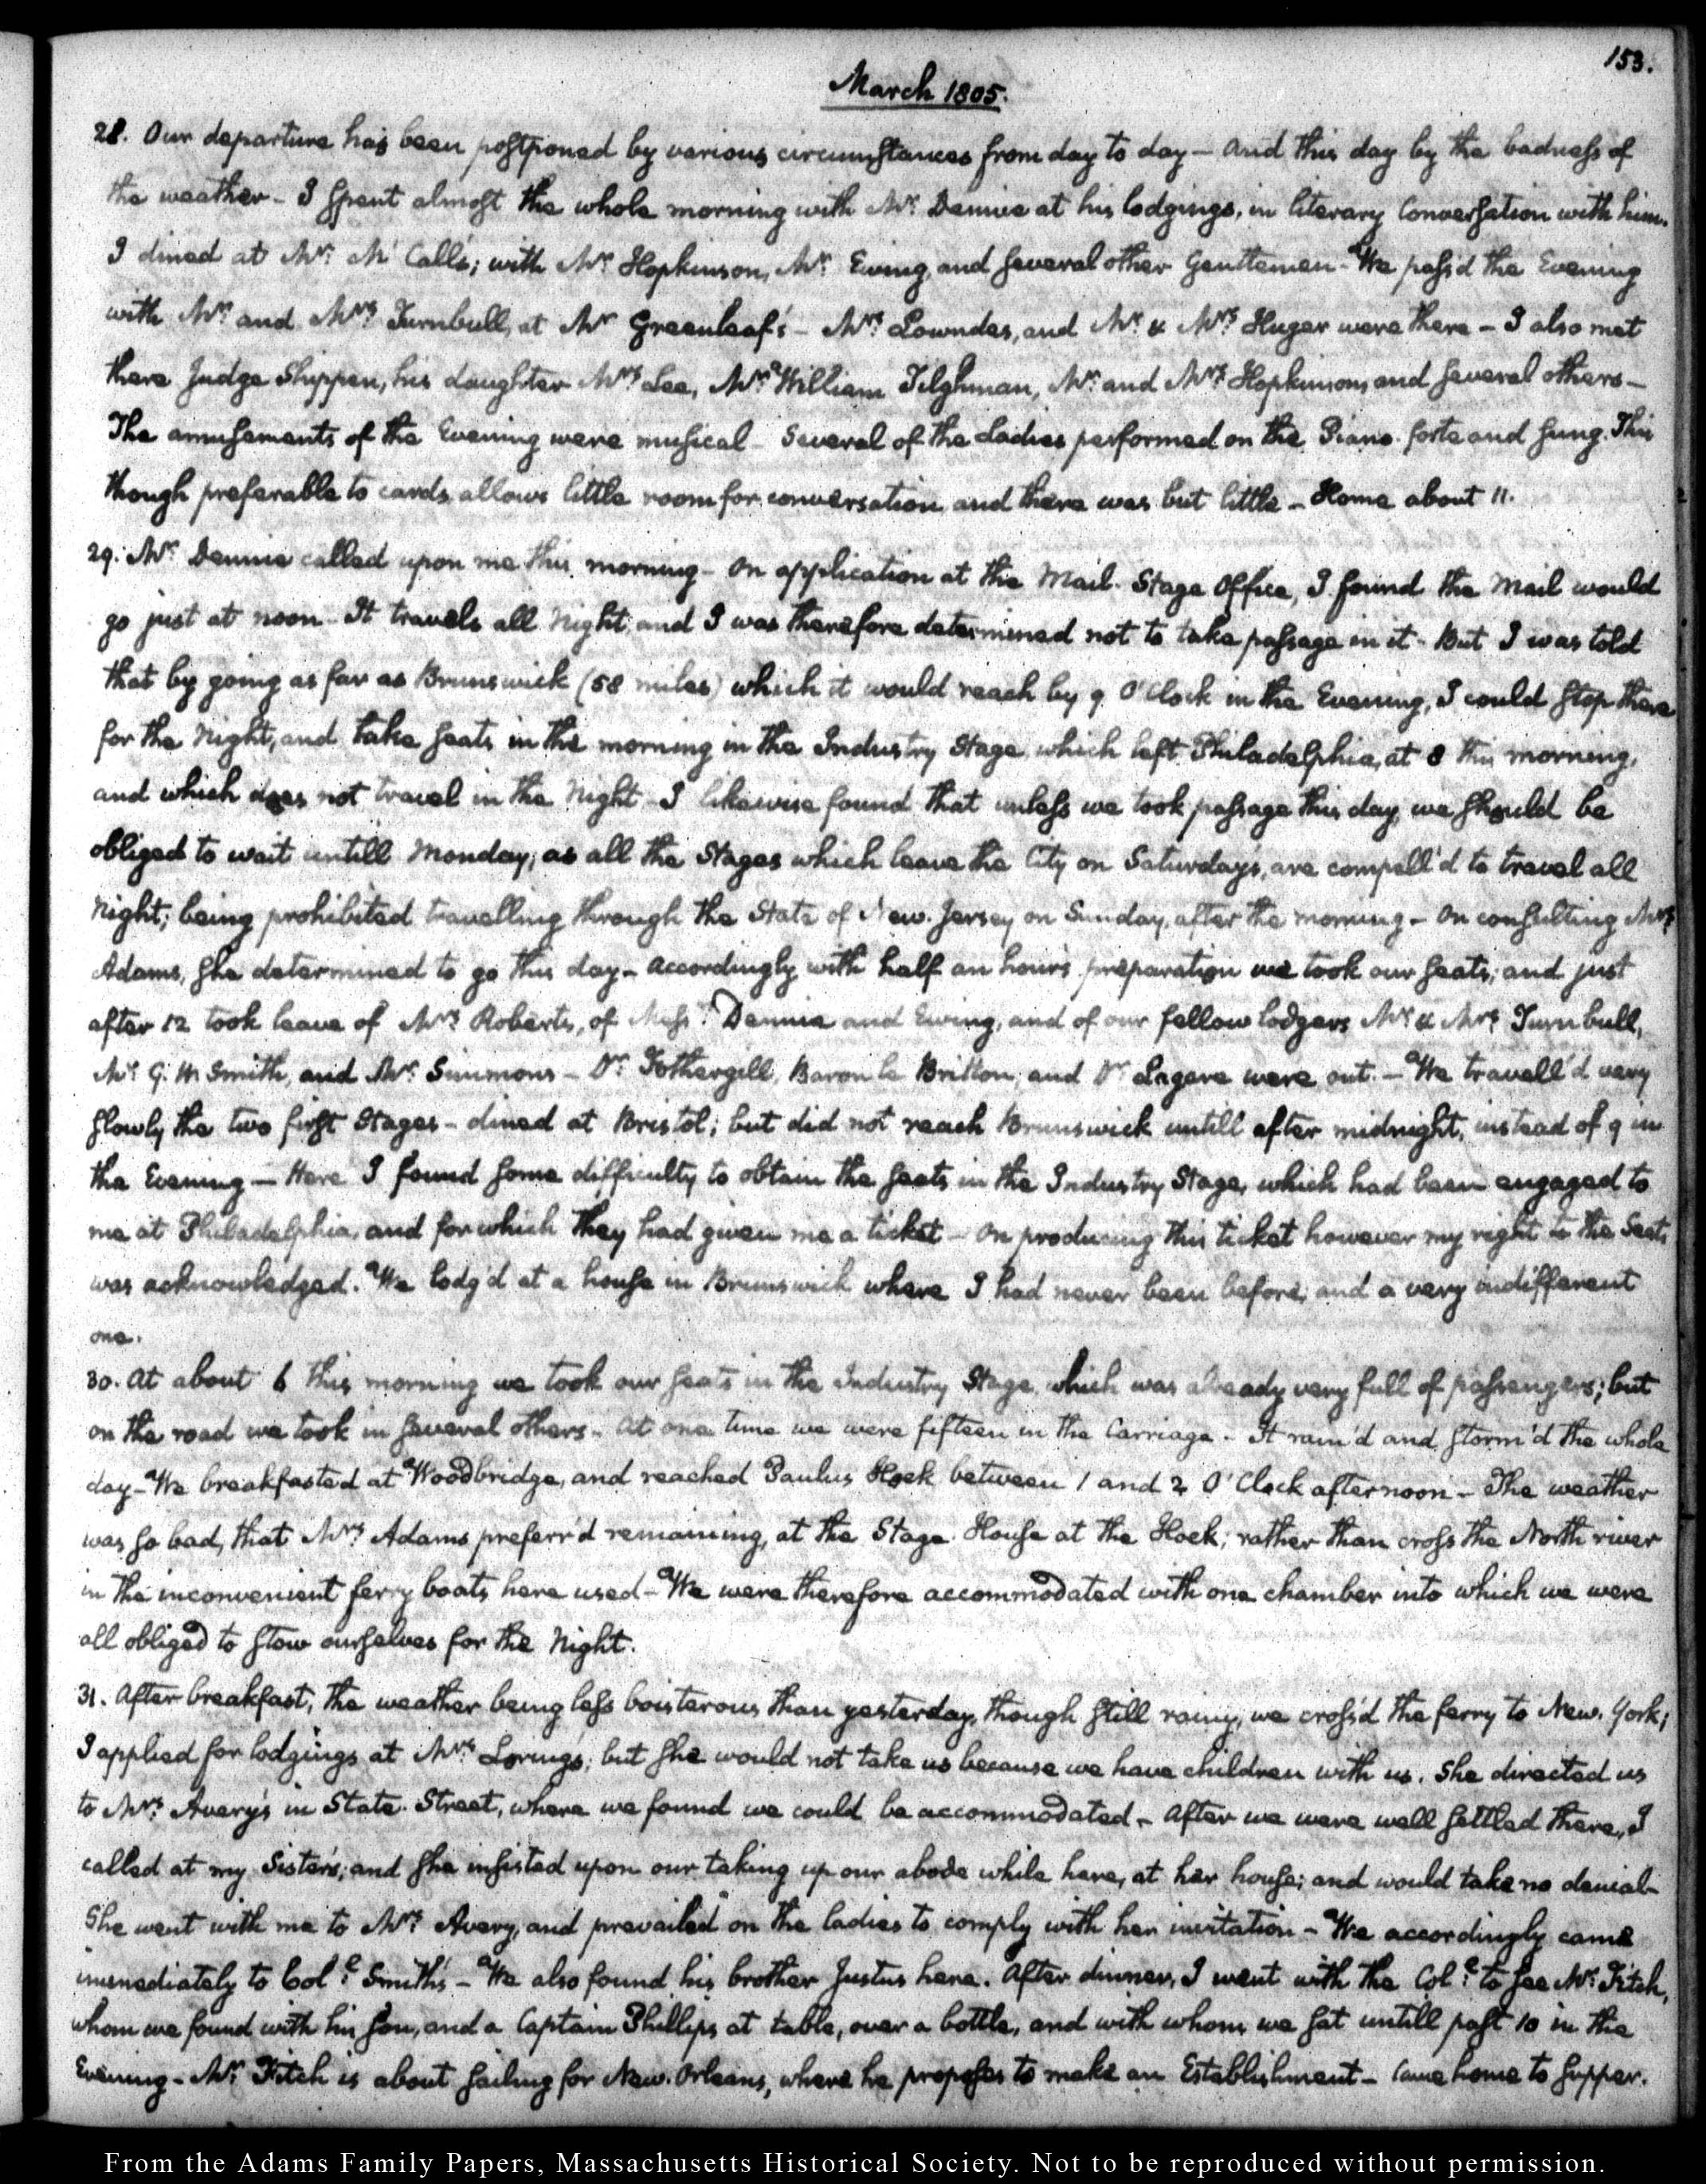 153.
March 1805.
28. Our departure has been postponed by various circumstances from day to day — and this day by the badness of
the weather — I spent almost the whole morning with Mr. Dennie at his lodgings, in literary Conversation with him.
I dined at Mr. Mc Call's; with Mr. Hopkinson, Mr. Ewing, and several other Gentlemen — We pass'd the Evening
with Mr. and Mrs. Turnbull, at Mr Greenleaf's — Mrs. Lowndes, and Mr. & Mrs. Huger were there — I also met
there Judge Shippen, his daughter Mrs. Lea, Mr. William Tilghman, Mr. and Mrs. Hopkinson, and several others —
The amusements of the Evening were musical — Several of the Ladies performed on the Piano forte and sung. This
though preferable to cards allows little room for conversation and there was but little — Home about 11.
29. Mr. Dennie called upon me this morning — On application at the Mail-Stage Office, I found the Mail would
go just at noon — It travels all Night, and I was therefore determined not to take passage in it — But I was told
that by going as far as Brunswick (58 miles) which it would reach by 9 O'Clock in the Evening, I could stop there
for the Night, and take seats in the morning in the Industry Stage, which left Philadelphia, at 8 this morning,
and which does not travel in the Night — I likewise found that unless we took passage this day, we should be
obliged to wait untill Monday; as all the Stages which leave the City on Saturdays, are compell'd to travel all
Night; being prohibited travelling through the State of New-Jersey on Sunday, after the morning — On consulting Mrs.
Adams, she determined to go this day — accordingly with half an hour's preparation we took our seats; and just
after 12 took leave of Mrs. Roberts, of Messrs. Dennie and Ewing, and of our fellow lodgers Mr. & Mrs. Turnbull,
Mr. G. M Smith, and Mr. Simmons — Dr. Fothergill, Baron le Britton, and Dr. Lagare were out. — We travell'd very
slowly the two first Stages — dined at Bristol; but did not reach Brunswick untill after midnight, instead of 9 in
the Evening — Here I found some difficulty to obtain the seats in the Industry Stage, which had been engaged to
me at Philadelphia, and for which they had given me a ticket — On producing this ticket however my right to the Seats
was acknowledged. We lodg'd at a house in Brunswick where I had never been before, and a very indifferent
one.
30. At about 6 this morning we took our seats in the Industry Stage, which was already very full of passengers; but
on the road we took in several others — At one time we were fifteen in the Carriage — It rain'd and storm'd the whole
day — We breakfasted at Woodbridge, and reached Paulus Hoek between 1 and 2 O'Clock afternoon — The weather
was so bad, that Mrs. Adams preferr'd remaining, at the Stage House at the Hoek; rather than cross the North river
in the inconvenient ferry boats here used — We were therefore accommodated with one chamber into which we were
all obliged to stow ourselves for the Night.
31. After breakfast, the weather being less boisterous than yesterday, though still rainy, we cross'd the ferry to New-York;
I applied for lodgings at Mrs. Loring's; but she would not take us because we have children with us. She directed us
to Mrs. Avery's in State-Street, where we found we could be accommodated — After we were well settled there, I
called at my Sister's; and she insisted upon our taking up our abode while here, at her house; and would take no denial —
She went with me to Mrs. Avery, and prevailed on the ladies to comply with her invitation — We accordingly came
immediately to Coll. Smith's — We also found his brother Justus here. After dinner, I went with the Coll. to see Mr. Fitch,
whom we found with his son, and a Captain Phillips at table, over a bottle, and with whom we sat untill past 10 in the
Evening — Mr. Fitch is about sailing for New-Orleans, where he proposes to make an Establishment — Came home to supper.
From the Adams Family Papers, Massachusetts Historical Society. Not to be reproduced without permission.